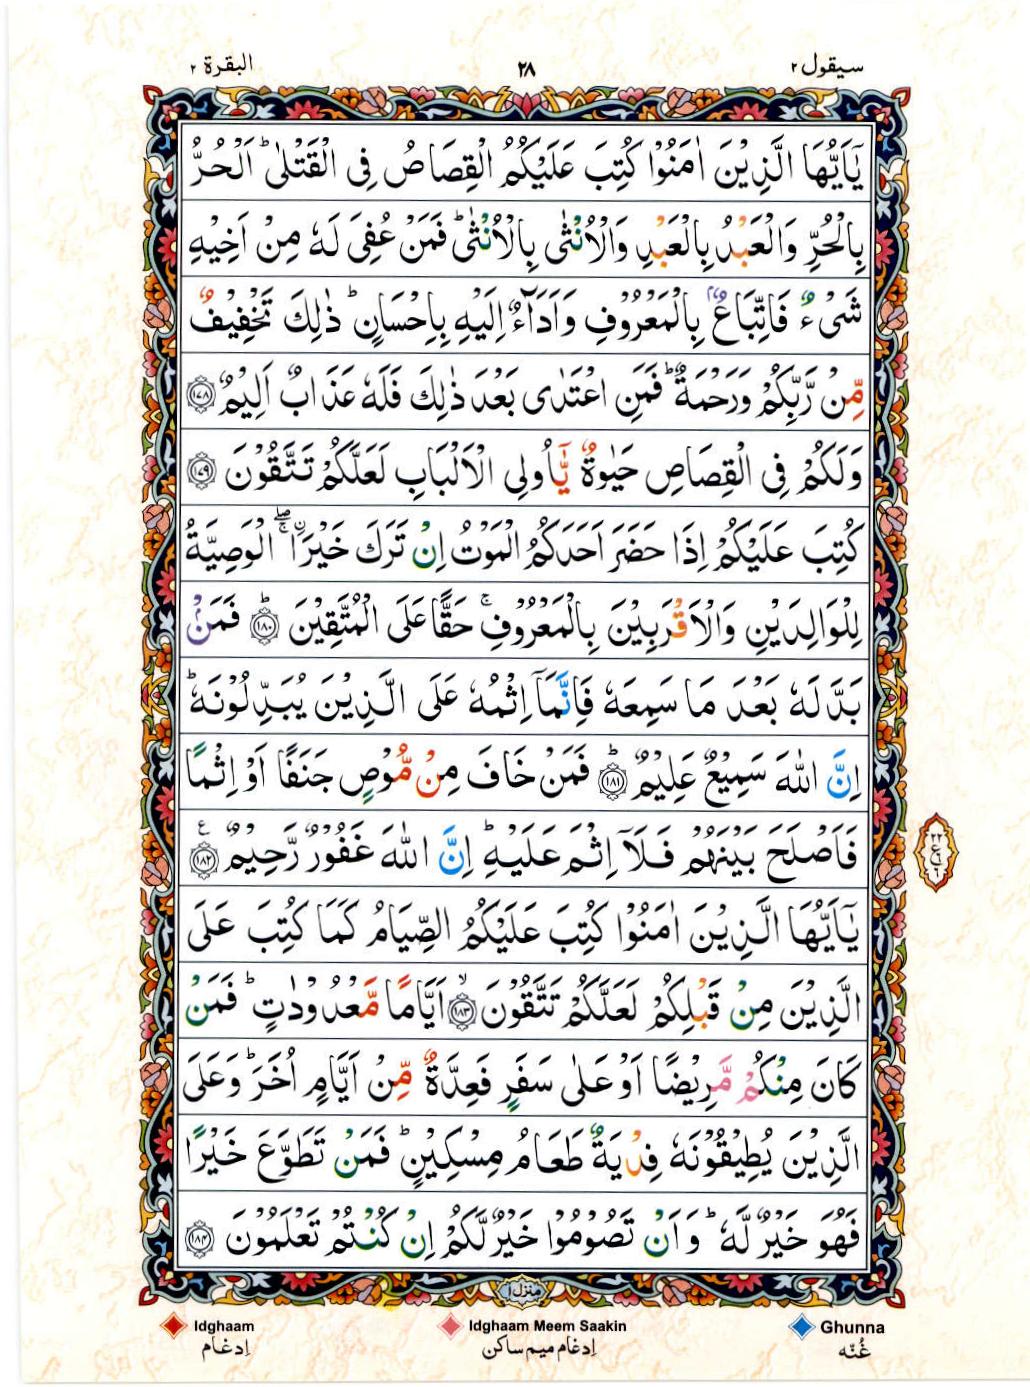 سيقول ٢
٢٨
البقرة ٢
يٰٓاَيُّهَا الَّذِيْنَ اٰمَنُوْا كُتِبَ عَلَيْكُمُ الْقِصَاصُ فِى الْقَتْلٰىؕ اَلْحُرُّ
بِالْحُرِّ وَالْعَبْدُ بِالْعَبْدِ وَالْاُنْثٰى بِالْاُنْثٰىؕ فَمَنْ عُفِىَ لَهٗ مِنْ اَخِيْهِ
شَىْءٌ فَاتِّبَاعٌۢ بِالْمَعْرُوْفِ وَاَدَآءٌ اِلَيْهِ بِاِحْسَانٍؕ ذٰلِكَ تَخْفِيْفٌ
مِّنْ رَّبِّكُمْ وَرَحْمَةٌؕ فَمَنِ اعْتَدٰى بَعْدَ ذٰلِكَ فَلَهٗ عَذَابٌ اَلِيْمٌ ﴿١٧٨﴾
وَلَكُمْ فِى الْقِصَاصِ حَيٰوةٌ يّٰٓاُولِى الْاَلْبَابِ لَعَلَّكُمْ تَتَّقُوْنَ ﴿١٧٩﴾
كُتِبَ عَلَيْكُمْ اِذَا حَضَرَ اَحَدَكُمُ الْمَوْتُ اِنْ تَرَكَ خَيْرَا ۖۚ اۨلْوَصِيَّةُ
لِلْوَالِدَيْنِ وَالْاَقْرَبِيْنَ بِالْمَعْرُوْفِۚ حَقًّا عَلَى الْمُتَّقِيْنَؕ ﴿١٨٠﴾ فَمَنْۢ
بَدَّلَهٗ بَعْدَ مَا سَمِعَهٗ فَاِنَّمَآ اِثْمُهٗ عَلَى الَّذِيْنَ يُبَدِّلُوْنَهٗؕ
اِنَّ اللّٰهَ سَمِيْعٌ عَلِيْمٌؕ ﴿١٨١﴾ فَمَنْ خَافَ مِنْ مُّوْصٍ جَنَفًا اَوْ اِثْمًا
فَاَصْلَحَ بَيْنَهُمْ فَلَآ اِثْمَ عَلَيْهِؕ اِنَّ اللّٰهَ غَفُوْرٌ رَّحِيْمٌ ﴿١٨٢﴾ ع
يٰٓاَيُّهَا الَّذِيْنَ اٰمَنُوْا كُتِبَ عَلَيْكُمُ الصِّيَامُ كَمَا كُتِبَ عَلَى
الَّذِيْنَ مِنْ قَبْلِكُمْ لَعَلَّكُمْ تَتَّقُوْنَۙ ﴿١٨٣﴾ اَيَّامًا مَّعْدُوْدٰتٍؕ فَمَنْ
كَانَ مِنْكُمْ مَّرِيْضًا اَوْ عَلٰى سَفَرٍ فَعِدَّةٌ مِّنْ اَيَّامٍ اُخَرَؕ وَعَلَى
الَّذِيْنَ يُطِيْقُوْنَهٗ فِدْيَةٌ طَعَامُ مِسْكِيْنٍؕ فَمَنْ تَطَوَّعَ خَيْرًا
فَهُوَ خَيْرٌ لَّهٗؕ وَاَنْ تَصُوْمُوْا خَيْرٌ لَّكُمْ اِنْ كُنْتُمْ تَعْلَمُوْنَ ﴿١٨٤﴾
منزل ١
Ghunna
غُنّه
Idghaam Meem Saakin
اِدغام میم ساکن
Idghaam
اِدغام